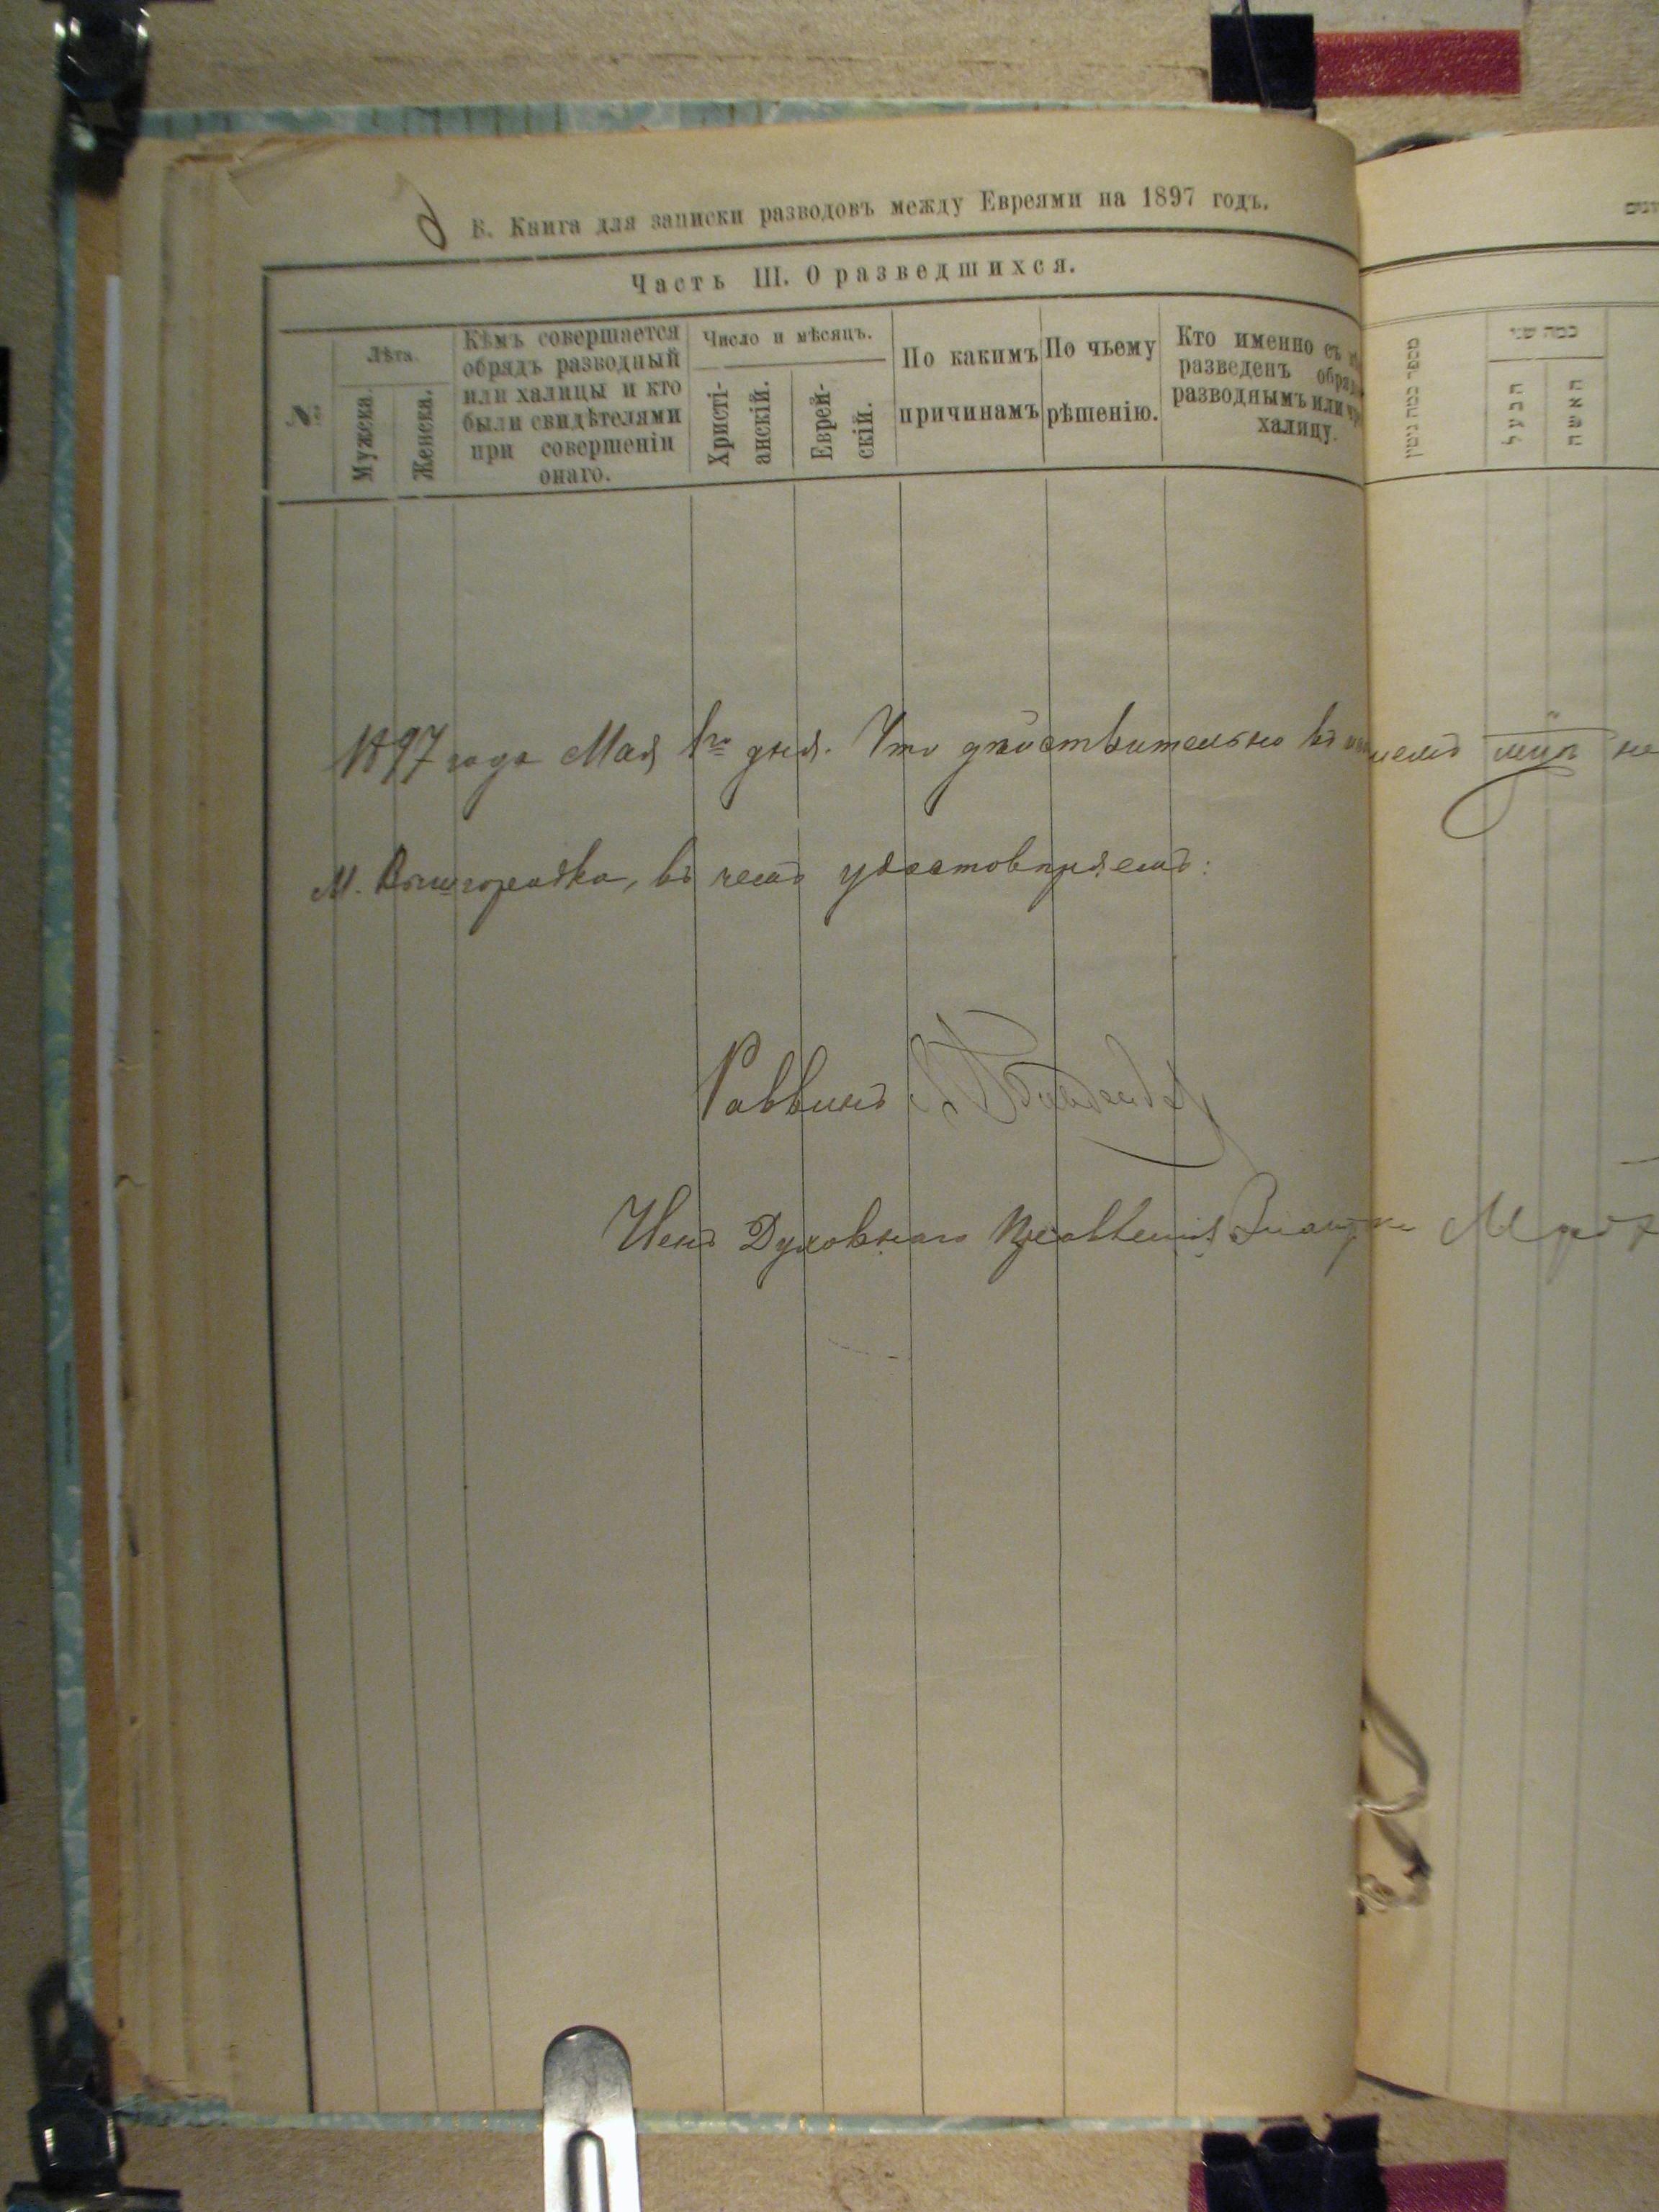 В. Книга для записки разводовъ между Евреями на 1897 годъ.
Часть III. О разведшихся.
№
Лѣта.
Мужеска.
Женска.
Кѣмъ совершается
обрядъ разводный
или халицы и кто
были свидѣтелями
при совершеніи
онаго.
Число и мѣсяцъ.
Христі-
анскій.
Еврей-
скій.
По какимъ
причинамъ
По чьему
рѣшенію.
Кто именно съ
разведенъ
разводнымъ или
халицу.
מספר כמה גיטין
כמה שני
הבעל
האשה
1897 года Мая 1го дня. Что дѣйствительно въ не
М. Вышгородка, въ чемъ удостовѣряемъ:
Раввинъ
Членъ Духовнаго Правленія